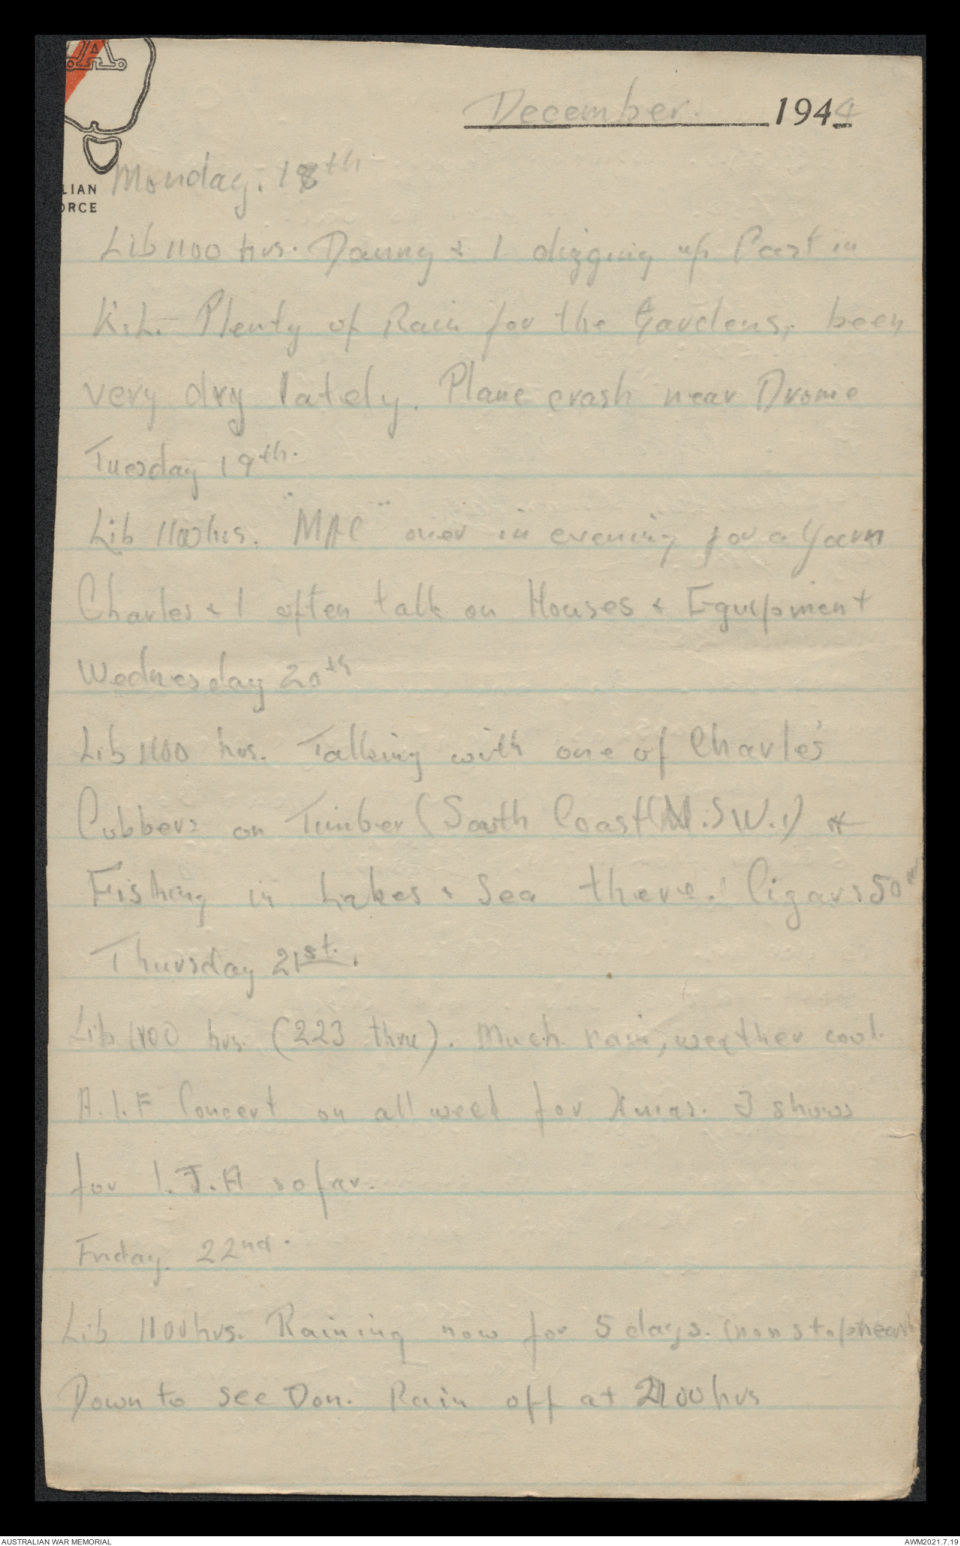 A.
LIAN
ORCE
December. 1944
Monday. 18th
Lib 1100 hrs. Danny & I digging up Past in
Kit. Plenty of Rain for the Gardens, been
very dry lately. Plane crash near Drome
Tuesday 19th.
Lib 1100hrs. "MAC" over in evening for a Yarn
Charles & I often talk on Houses & Equipment
Wednesday 20th
Lib 1100 hrs. Talking with one of Charles'
Cobbers on Timber (South Coast (N.S.W.)) &
Fishing in Lakes & Sea there. Cigars 50
Thursday 21st.
Lib 1100 hrs. (223 thru). Much rain, weather cool.
A.I.F Concert on all week for Xmas. 3 shows
for I.J.A so far.
Friday. 22nd.
Lib 1100hrs. Raining now for 5 days. (non stop
Down to see Don. Rain off at 2100hrs
AUSTRALIAN WAR MEMORIAL
AWM2021.7.19